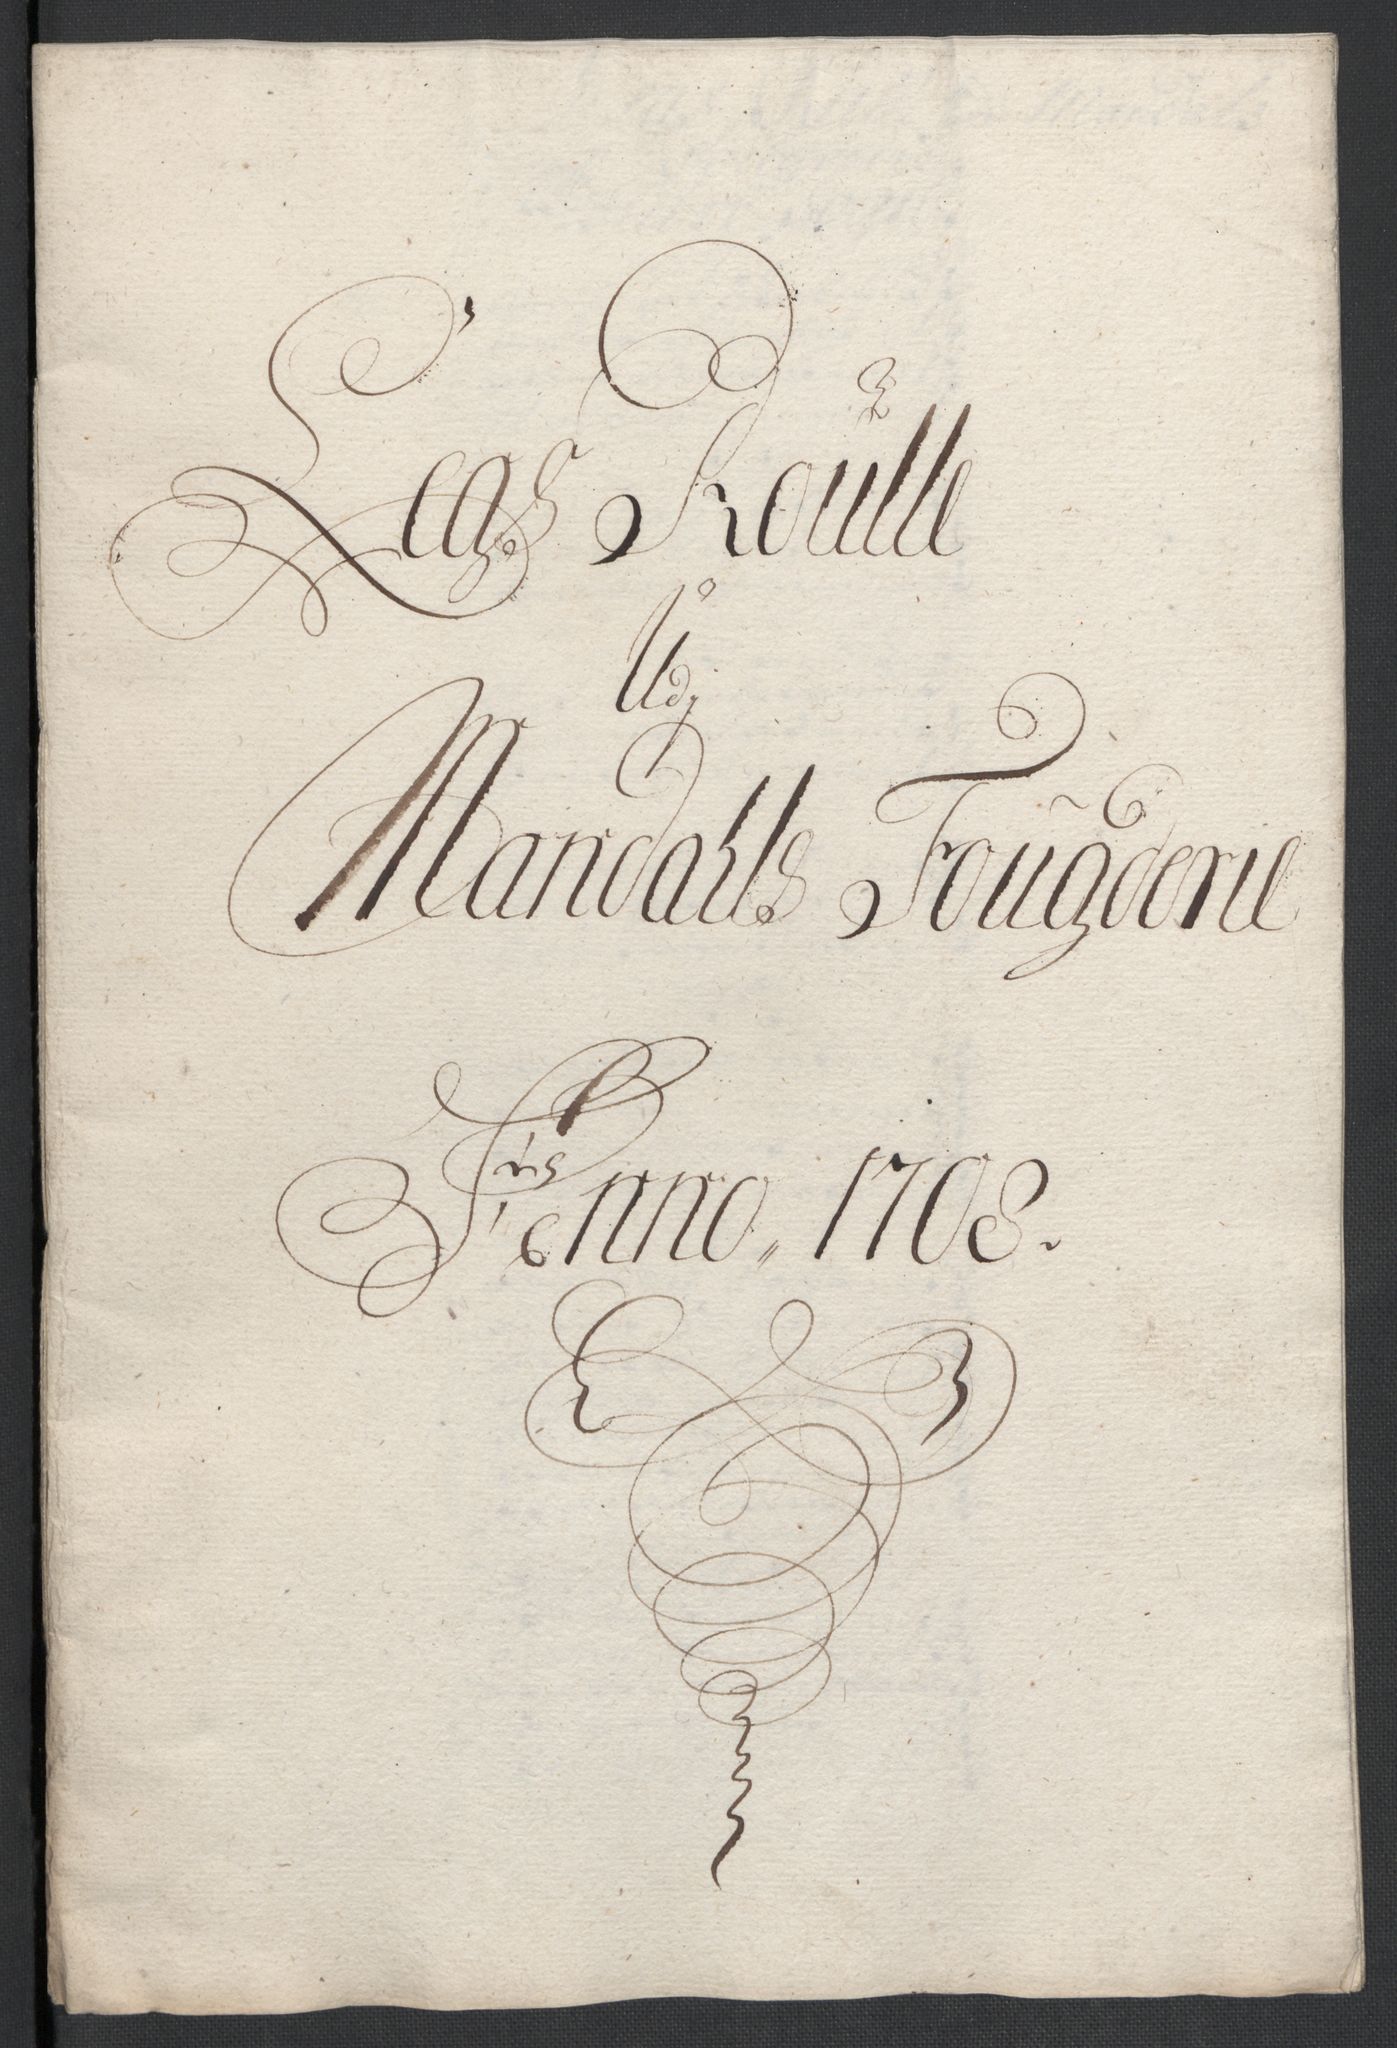 Legs Roulle
Udj
Mandahls Fougderie
Anno, 1708.